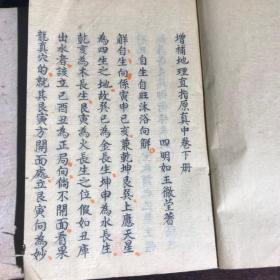 增補地理直指原真中卷下冊
四明如玉徹瑩著
自生自旺沐浴向解
解自生向係寅申巳亥兼乾坤艮巽上應天星
為四生之地故巽巳為金長生坤申為水長生
乾亥為木長生艮寅為火長生之位假如丑庫
出水者該立巳酉丑為正局向倘不開面看果
龍真穴的就其艮寅方開面處立艮寅向為妙